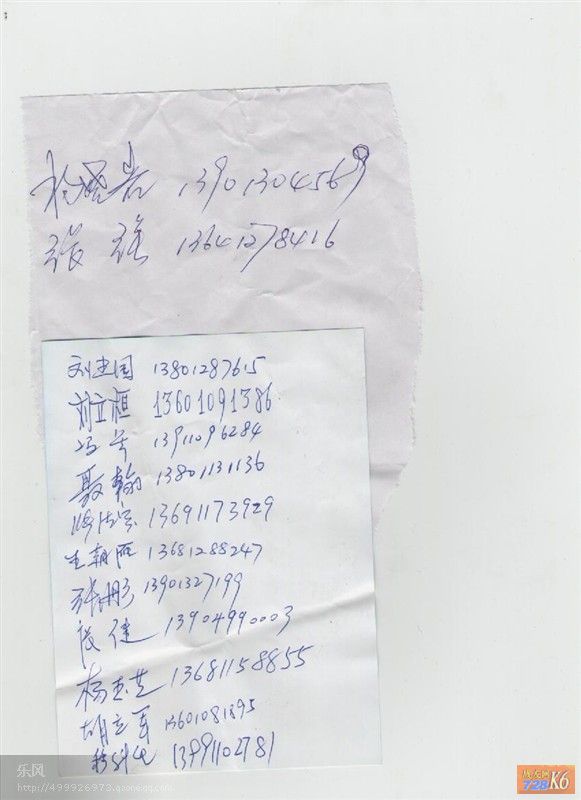 13901304569
张强 13641278416
刘建国 13801287615
刘立桓 13601091386
冯 13911096284
聂翰 13801131136
13691173929
王朝 13681288247
张彤 13901327199
段健 13904990003
杨玉芝 13681158855
胡立军 13601081895
13991102781
乐风
http://499926973.qzone.qq.com
战友网
728 K6